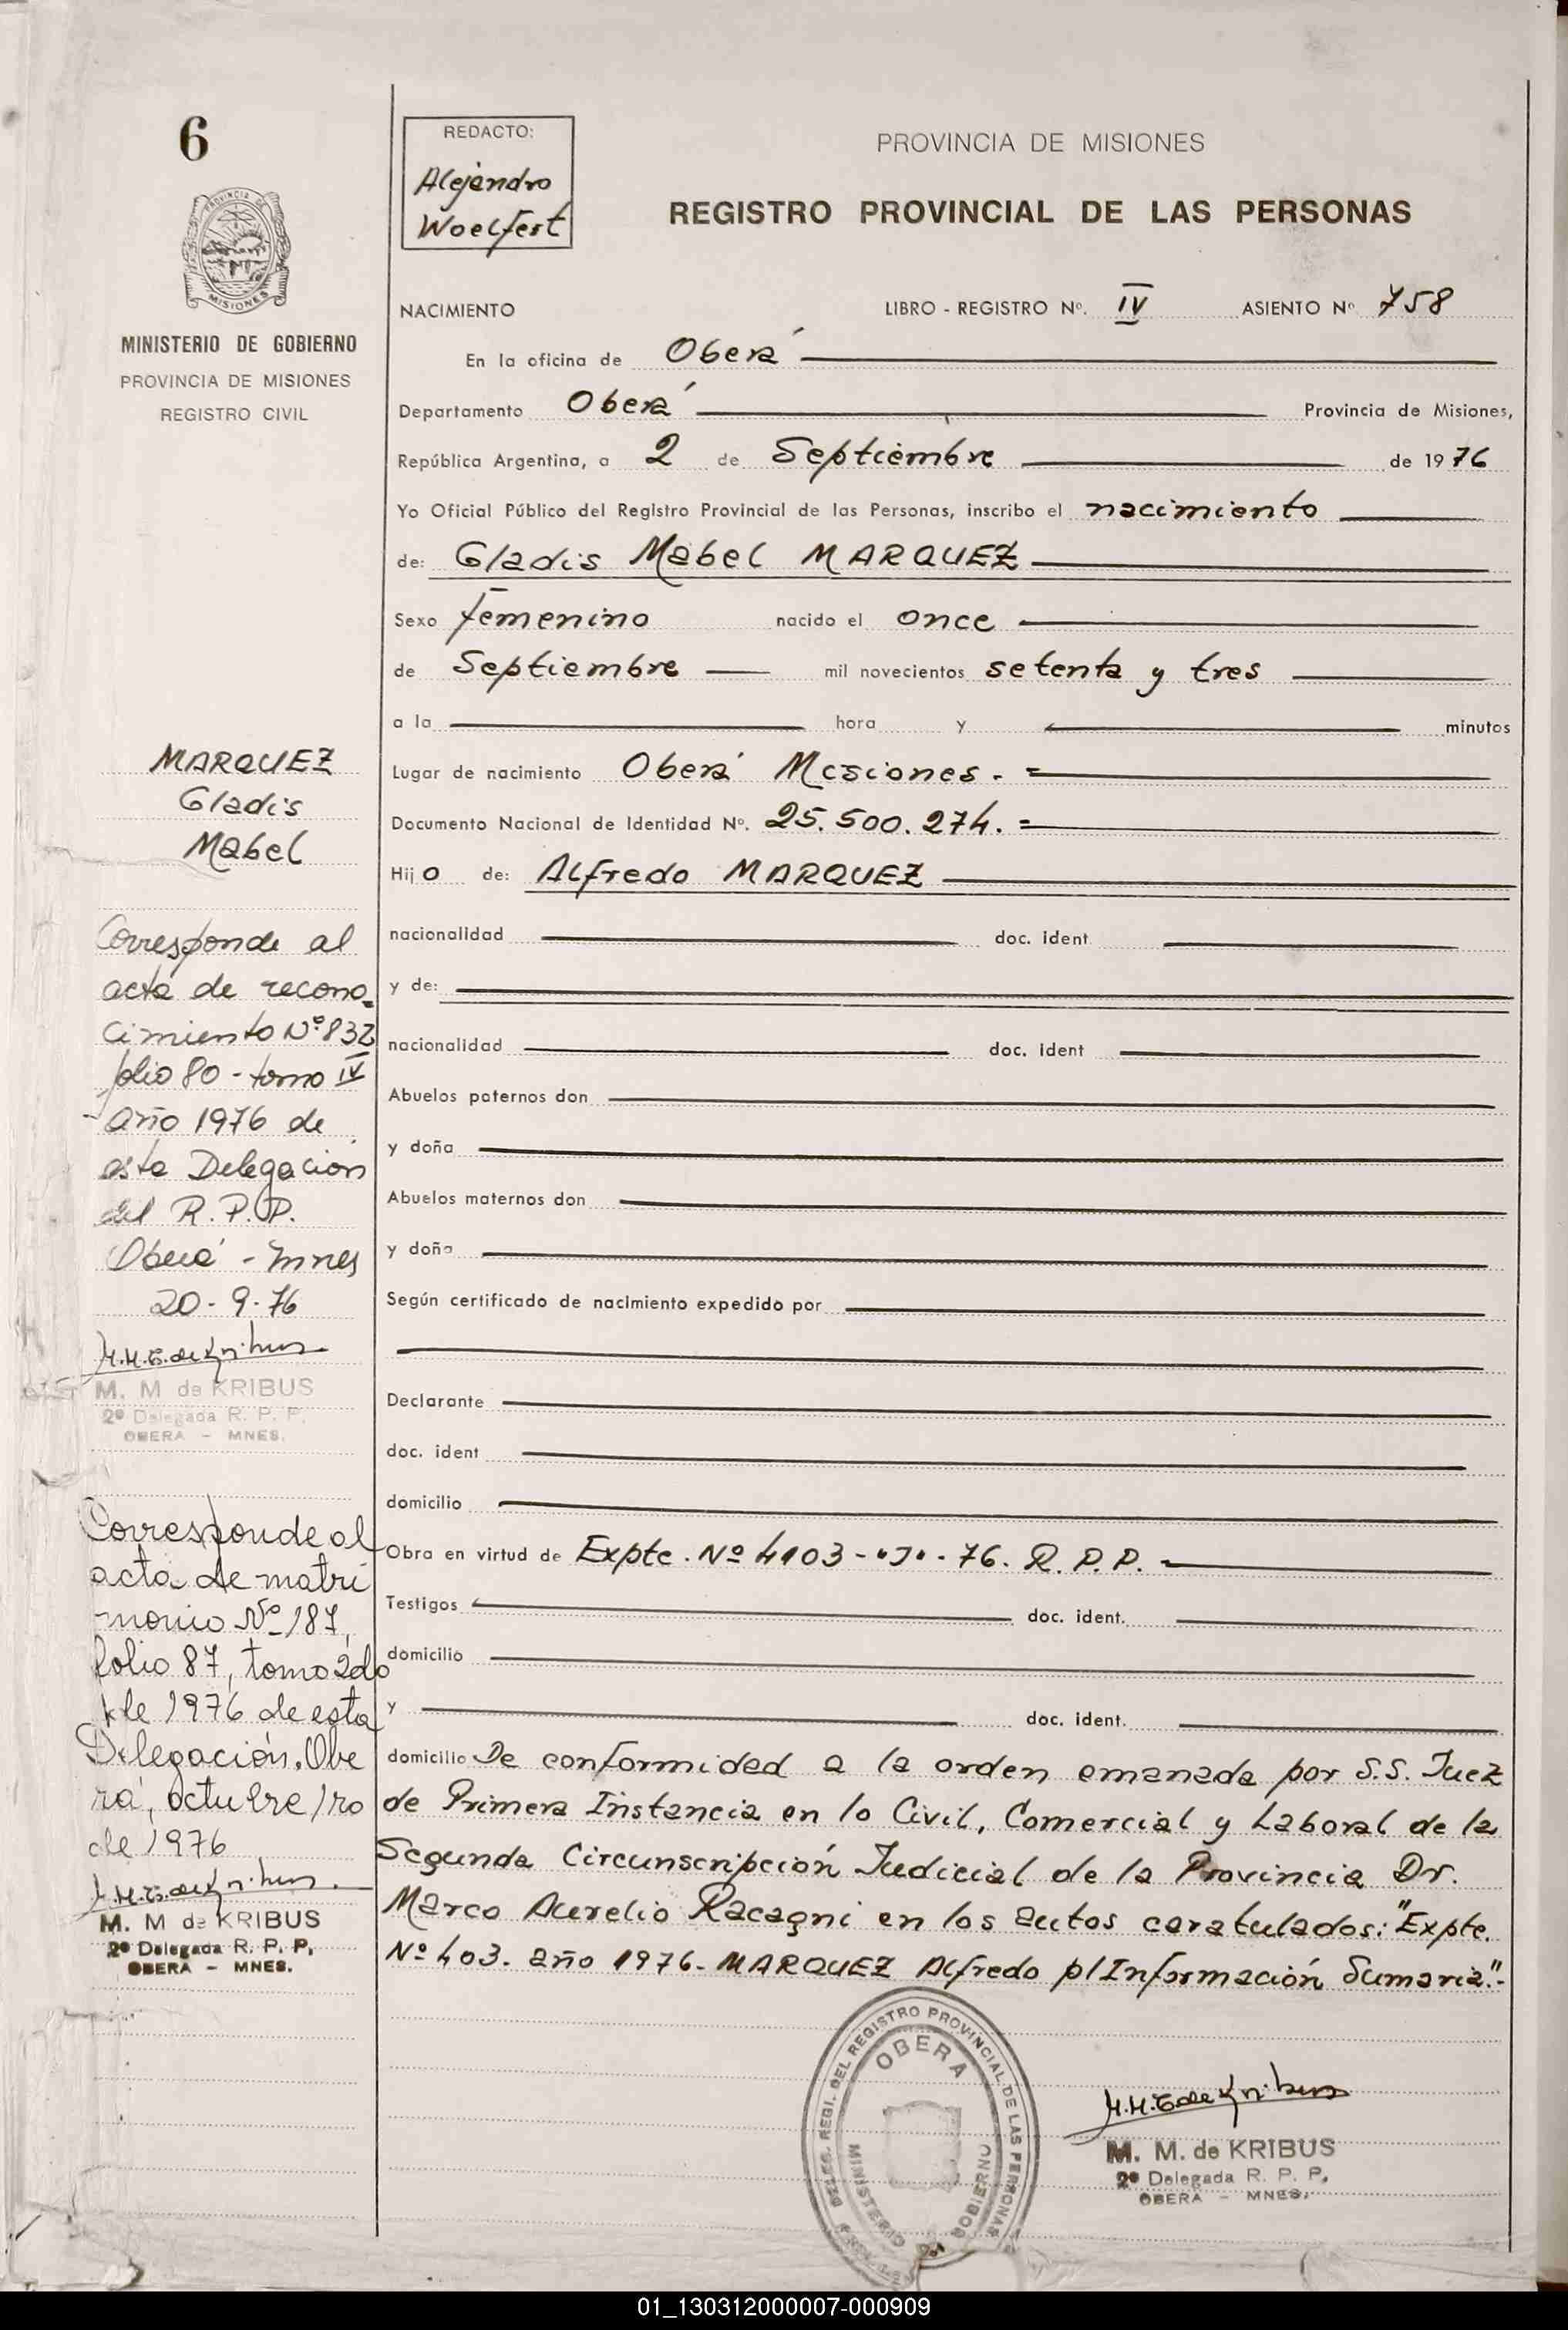 6
PROVINCIA DE
MISIONES
MINISTERIO DE GOBIERNO
PROVINCIA DE MISIONES
REGISTRO CIVIL
MARQUEZ
Gladis
Mabel
Corresponde al
acta de recono=
cimiento Nº 832
folio 80 - tomo IV
año 1976 de
esta Delegación
del R. P. P.
Oberá - Mnes
20-9-76
M. M de KRIBUS
2º Delegada R. P. P.
OBERA - MNES.
Corresponde al
acta de matri
-monio Nº 187,
folio 87, tomo 2do
de 1976 de esta
Delegación. Obe
rá, octubre 1ro
de 1976
M. M de KRIBUS
2º Delegada R. P. P.
OBERA - MNES.
REDACTO:
Alejandro
Woelfert
PROVINCIA DE MISIONES
REGISTRO PROVINCIAL DE LAS PERSONAS
NACIMIENTO LIBRO - REGISTRO Nº. IV ASIENTO Nº 758
En la oficina de Oberá
Departamento Oberá Provincia de Misiones,
República Argentina, a 2 de Septiembre de 1976
Yo Oficial Público del Registro Provincial de las Personas, inscribo el nacimiento
de: Gladis Mabel MARQUEZ
Sexo femenino nacido el once
de Septiembre mil novecientos setenta y tres
a la hora y minutos
Lugar de nacimiento Oberá Misiones. =
Documento Nacional de Identidad Nº. 25.500.274. =
Hijo de: Alfredo MARQUEZ
nacionalidad doc. ident
y de:
nacionalidad doc. ident
Abuelos paternos don
y doña
Abuelos maternos don
y doña
Según certificado de nacimiento expedido por
Declarante
doc. ident
domicilio
Obra en virtud de Expte. Nº 4103-"J"-76. R.P.P.
Testigos doc. ident.
domicilio
y doc. ident.
domicilio De conformidad a la orden emanada por S.S. Juez
de Primera Instancia en lo Civil, Comercial y Laboral de la
Segunda Circunscripción Judicial de la Provincia Dr.
Marco Aurelio Racagni en los autos caratulados: "Expte.
Nº 403. año 1976- MARQUEZ Alfredo p/Información Sumaria."-
REGI. DEL REGISTRO PROVINCIAL DE LAS PERSONAS
OBERA
MINISTERIO
GOBIERNO
M. M. de KRIBUS
2º Delegada R. P. P.
OBERA - MNES.
01_130312000007-000909